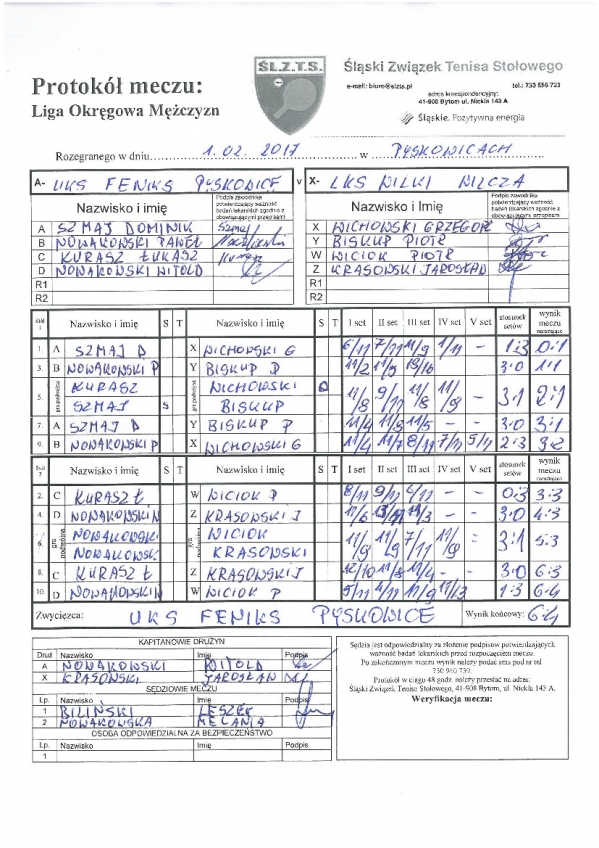 ŚL.Z.T.S.
Śląski Związek Tenisa Stołowego
e-mail: biuro@slzts.pl tel.: 733 555 723
adres korespondencyjny:
41-908 Bytom ul. Nickla 143 A
Śląskie. Pozytywna energia
Protokół meczu:
Liga Okręgowa Mężczyzn
Rozegranego w dniu 1.02.2017 w PYSKOWICACH
A- UKS FENIKS PYSKOWICE v X- LKS WILKI WILCZA
Nazwisko i Imię Podpis zawodnika potwierdzający ważność badań lekarskich zgodnie z obowiązującymi przepisami Nazwisko i Imię Podpis zawodnika potwierdzający ważność badań lekarskich zgodnie z obowiązującymi przepisami
A SZMAJ DOMINIK X WICHOWSKI GRZEGORZ
B NOWAKOWSKI PAWEŁ Y BISKUP PIOTR
C KURASZ ŁUKASZ W WICIOK PIOTR
D NOWAKOWSKI WITOLD Z KRASOWSKI JAROSŁAW
R1 R1
R2 R2
Stół 1 Nazwisko i imię S T Nazwisko i imię S T I set II set III set IV set V set stosunek setów wynik meczu narastająco
1. A SZMAJ D X WICHOWSKI G 6/11 7/11 11/9 1/11 - 1:3 0:1
3. B NOWAKOWSKI P Y BISKUP P 11/2 11/5 18/16 3:0 1:1
5. gra podwójna KURASZ WICHOWSKI
SZMAJ S BISKUP 11/8 9/11 11/8 11/9 - 3:1 2:1
7. A SZMAJ D Y BISKUP P 11/4 11/8 11/5 - - 3:0 3:1
9. B NOWAKOWSKI P X WICHOWSKI G 11/4 11/7 8/11 7/11 5/11 2:3 3:2
Stół 2 Nazwisko i imię S T Nazwisko i imię S T I set II set III set IV set V set stosunek setów wynik meczu narastająco
2. C KURASZ Ł W WICIOK P 8/11 9/11 6/11 - - 0:3 3:3
4. D NOWAKOWSKI W Z KRASOWSKI J 11/6 11/3 - - 3:0 4:3
6. gra podwójna NOWAKOWSKI WICIOK
NOWAKOWSKI KRASOWSKI 11/9 11/9 7/11 11/9 - 3:1 5:3
8. C KURASZ Ł Z KRASOWSKI J 12/10 11/8 11/4 - - 3:0 6:3
10. D NOWAKOWSKI W WICIOK P 5/11 4/11 11/9 11/13 - 1:3 6:4
Zwycięzca: UKS FENIKS PYSKOWICE Wynik końcowy: 6:4
KAPITANOWIE DRUŻYN
Druż Nazwisko Imię Podpis
A NOWAKOWSKI WITOLD
X KRASOWSKI JAROSŁAW
SĘDZIOWIE MECZU
Lp. Nazwisko Imię Podpis
1 BILIŃSKI LESZEK
2 NOWAKOWSKA MELANIA
OSOBA ODPOWIEDZIALNA ZA BEZPIECZEŃSTWO
Lp. Nazwisko Imię Podpis
1
Sędzia jest odpowiedzialny za złożenie podpisów potwierdzających
ważność badań lekarskich przed rozpoczęciem meczu.
Po zakończonym meczu wynik należy podać sms pod nr tel
730 940 739.
Protokół w ciągu 48 godz. należy przesłać na adres:
Śląski Związek Tenisa Stołowego, 41-908 Bytom, ul. Nickla 143 A.
Weryfikacja meczu: